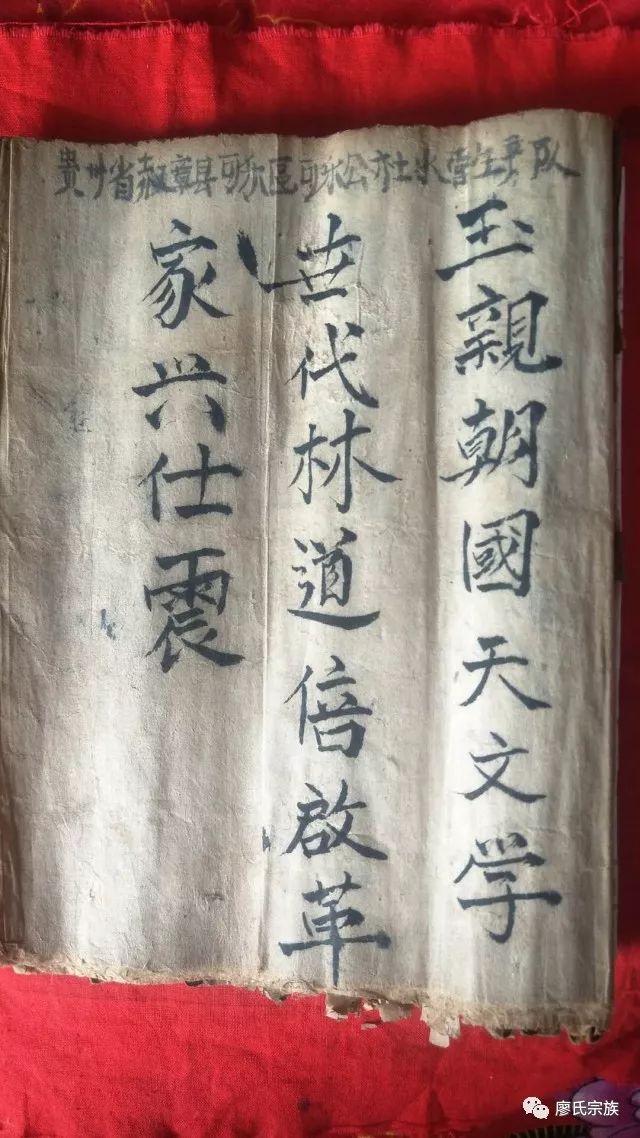 貴州省赫章县可乐區可乐公社水营生产队
玉親朝國天文学
世代林道倍啟革
家兴仕震
廖氏宗族